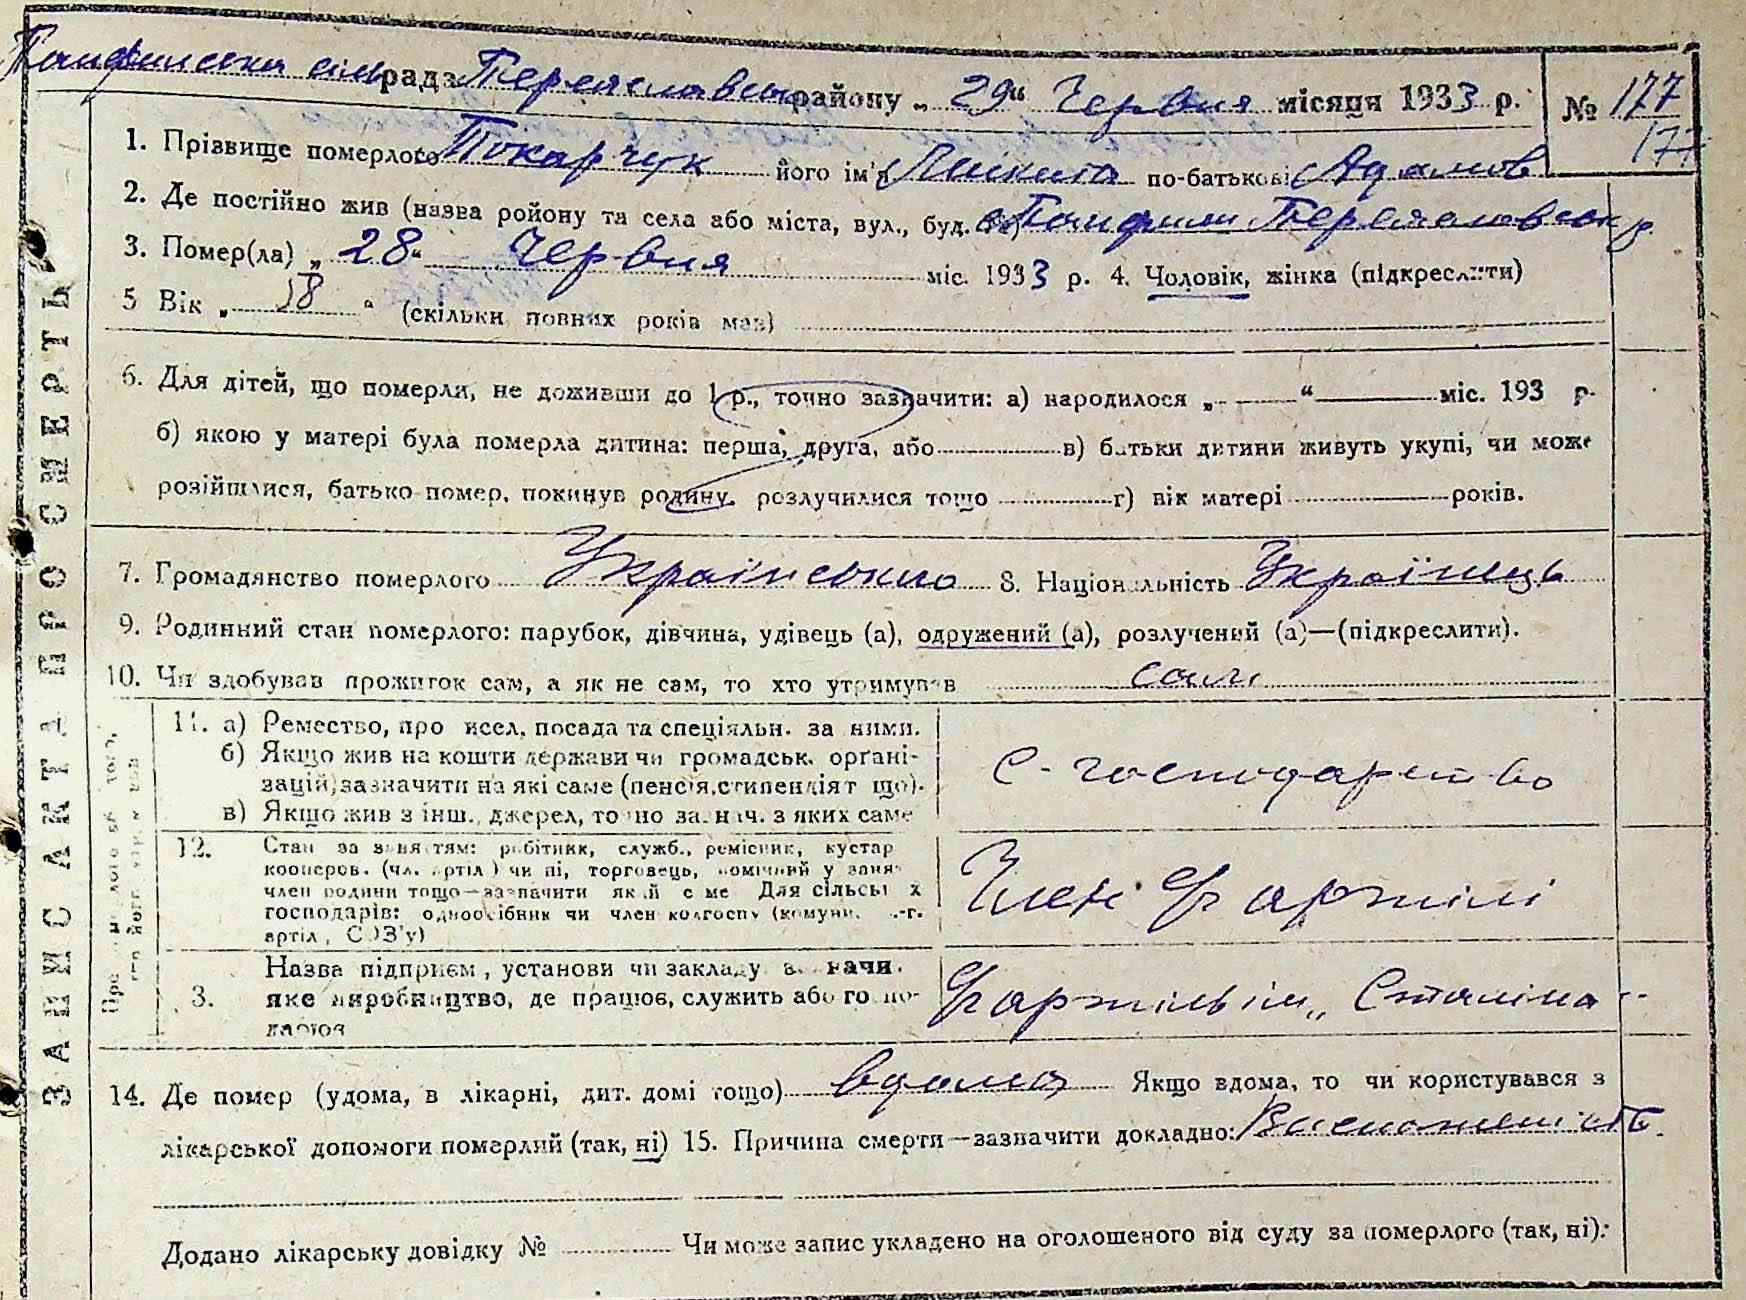 Панфилська сільрада Переяславськ району „29“ Червня місяця 1933 р. № 177
177
1. Прізвище померлого Токарчук його ім'я Микита по-батькові Адамов
2. Де постійно жив (назва ройону та села або міста, вул., буд. №) с Панфили Переяславськ р
3. Помер(ла) „28“ Червня міс. 1933 р. 4. Чоловік, жінка (підкреслити)
5 Вік „58“ (скільки повних років мав)
6. Для дітей, що померли, не доживши до 1 р., точно зазначити: а) народилося „ “ міс. 193 р.
б) якою у матері була померла дитина: перша, друга, або в) батьки дитини живуть укупі, чи може
розійшлися, батько помер, покинув родину, розлучилися тощо г) вік матері років.
7. Громадянство померлого Українське 8. Національність Українець
9. Родинний стан померлого: парубок, дівчина, удівець (а), одружений (а), розлучений (а)—(підкреслити).
10. Чи здобував прожиток сам, а як не сам, то хто утримував сам
11. а) Ремество, професл, посада та спеціяльн. за ними.
б) Якщо жив на кошти держави чи громадськ. орґані-
зацій, зазначити на які саме (пенсія, стипендія т що).
в) Якщо жив з інш. джерел, точно зазнач. з яких саме
С-господарство
12. Стан за заняттям: робітник, служб., ремісник, кустар
кооперов. (чл. артіл) чи ні, торговець, помічний у занят
член родини тощо—зазначити який с ме Для сільськ х
господарів: одноосібник чи член колгоспу (комуни, с.-г.
артіл, СОЗ'у)
Член С/г артілі
3. Назва підприєм, установи чи закладу, зазначи.
яке виробництво, де працює, служить або госпо-
дарює
С/г артіль ім„ Сталіна
14. Де помер (удома, в лікарні, дит. домі тощо) вдома Якщо вдома, то чи користувався з
лікарської допомоги померлий (так, ні) 15. Причина смерти—зазначити докладно: Виснаженість.
Додано лікарську довідку № Чи може запис укладено на оголошеного від суду за померлого (так, ні):
ЗАПИС АКТА ПРО СМЕРТЬ